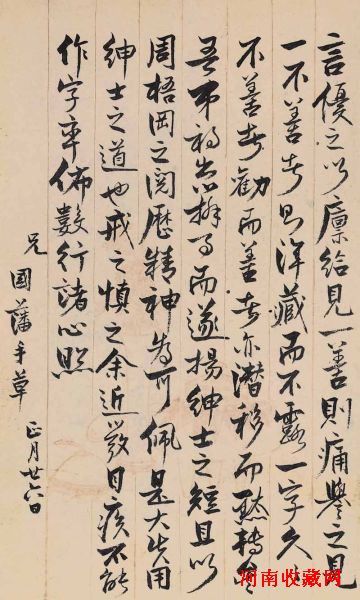 言優之以廩給見一善則痛譽之見
一不善者則渾藏而不露一字久久
不善者勸而善者亦潛移而默轉矣
吾弟初出辦事而遂揚紳士之短且以
周梧岡之閱歷精神為可佩是大失用
紳士之道也戒之慎之余近發目疾不能
作字率佈數行諸心照
兄國藩手草 正月廿六日
河南收藏网